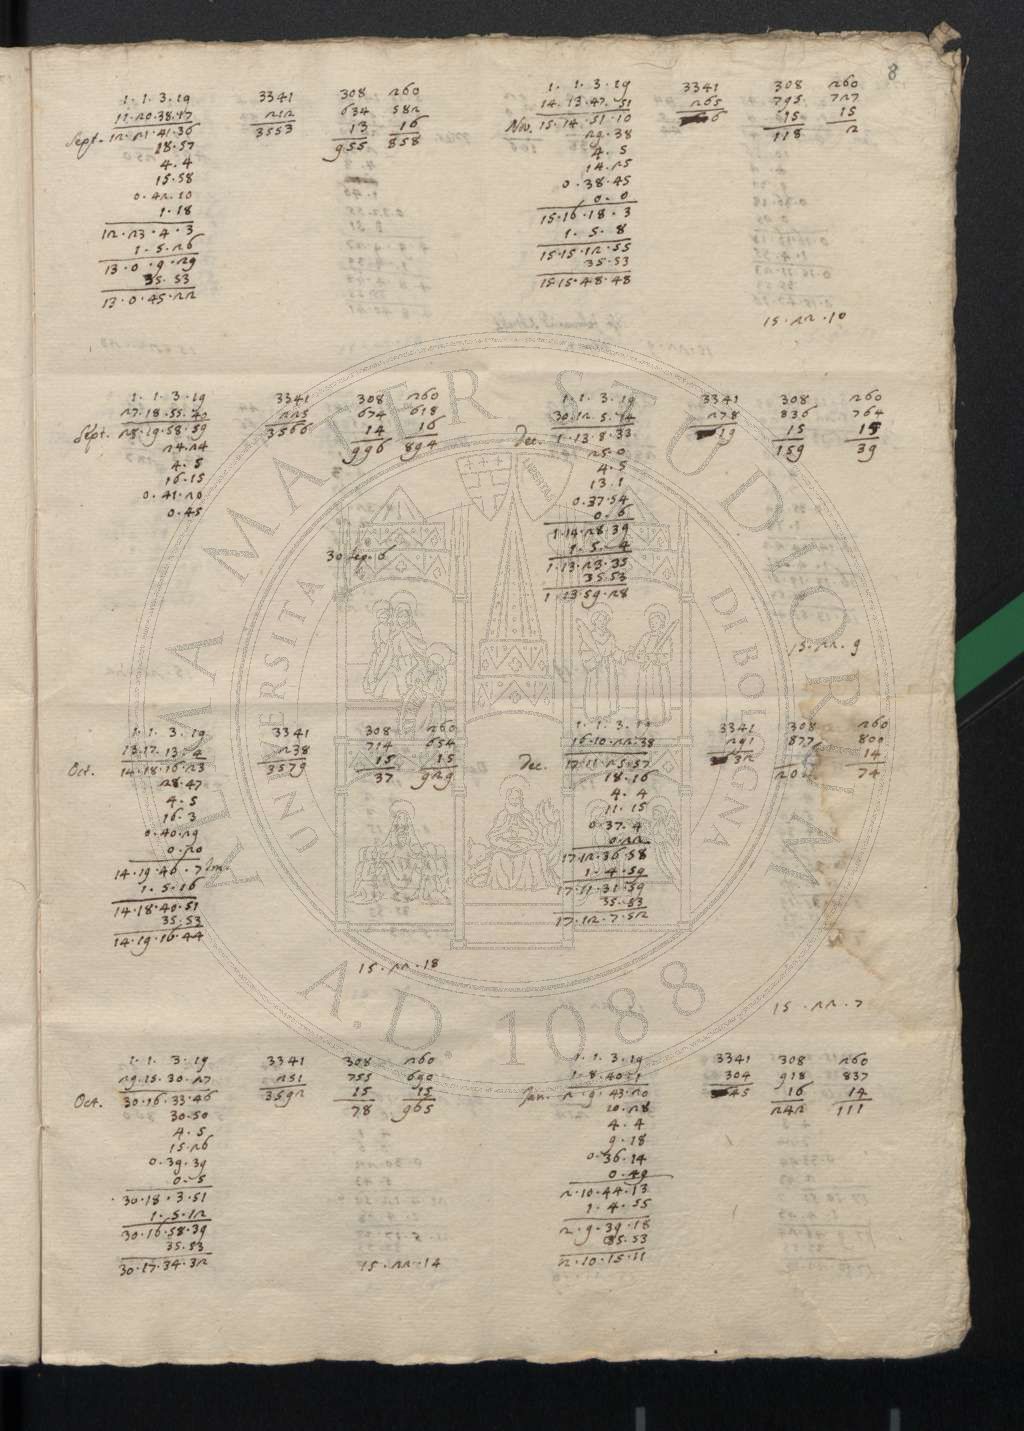 8
1. 1. 3. 19 3341 308 260
11.20.38.17 212 634 582
Sept. 12.21.41.36 3553 13 16
18.57 955 858
4.4
15.58
0.42.10
1.18
12.23.4.3
1.5.26
13.0.9.29
35.53
13.0.45.22
1. 1. 3. 19 3341 308 260
14.13.47.51 265 795 727
Nov. 15.14.51.10 15 15
29.38 118 2
4.5
14.25
0.38.45
0.0
15.16.18.3
1.5.8
15.15.12.55
35.53
15.15.48.48
15.22.10
1. 1. 3. 19 3341 308 260
27.18.55.40 225 674 618
Sept. 28.19.58.59 3566 14 16
24.24 996 894
4.5
16.15
0.41.20
0.45
30 sep. 6
1. 1. 3. 19 3341 308 260
30.12.5.14 278 836 764
Dec. 1.13.8.33 15 15
25.0 159 39
4.5
13.1
0.37.54
0.6
1.14.28.39
1.5.4
1.13.23.35
35.53
1.13.59.28
15.22.9
1. 1. 3. 19 3341 308 260
13.17.13.4 238 714 654
Oct. 14.18.16.23 3579 15 15
28.47 37 929
4.5
16.3
0.40.29
0.20
14.19.46.7
1.5.16
14.18.40.51
35.53
14.19.16.44
15.22.18
1. 1. 3. 19 3341 308 260
16.10.22.38 291 877 800
Dec. 17.11.25.57 14
18.16 74
4.4
11.15
0.37.4
0.22
17.12.36.58
1.4.59
17.11.31.59
35.53
17.12.7.52
15.22.7
1. 1. 3. 19 3341 308 260
29.15.30.27 251 755 690
Oct. 30.16.33.46 3592 15 15
30.50 78 965
4.5
15.26
0.39.39
0.5
30.18.3.51
1.5.12
30.16.58.39
35.53
30.17.34.32
15.22.14
1. 1. 3. 19 3341 308 260
1.8.40.1 304 918 837
Jan. 2.9.43.20 16 14
20.28 242 111
4.4
9.18
0.36.14
0.49
2.10.44.13
1.4.55
2.9.39.18
35.53
2.10.15.11
ALMA MATER STUDIORUM
UNIVERSITÀ DI BOLOGNA
A.D. 1088